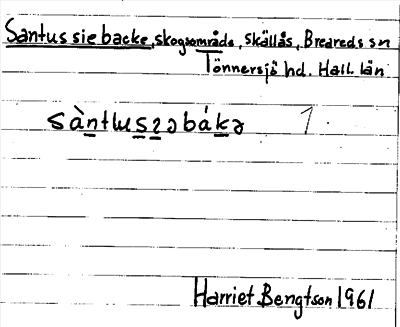 Santussiebacke, skogsområde, Skällås, Breareds sn
Tönnersjö hd. Hall. län
sàntlusɂəbákə 1.
Harriet Bengtson 1961